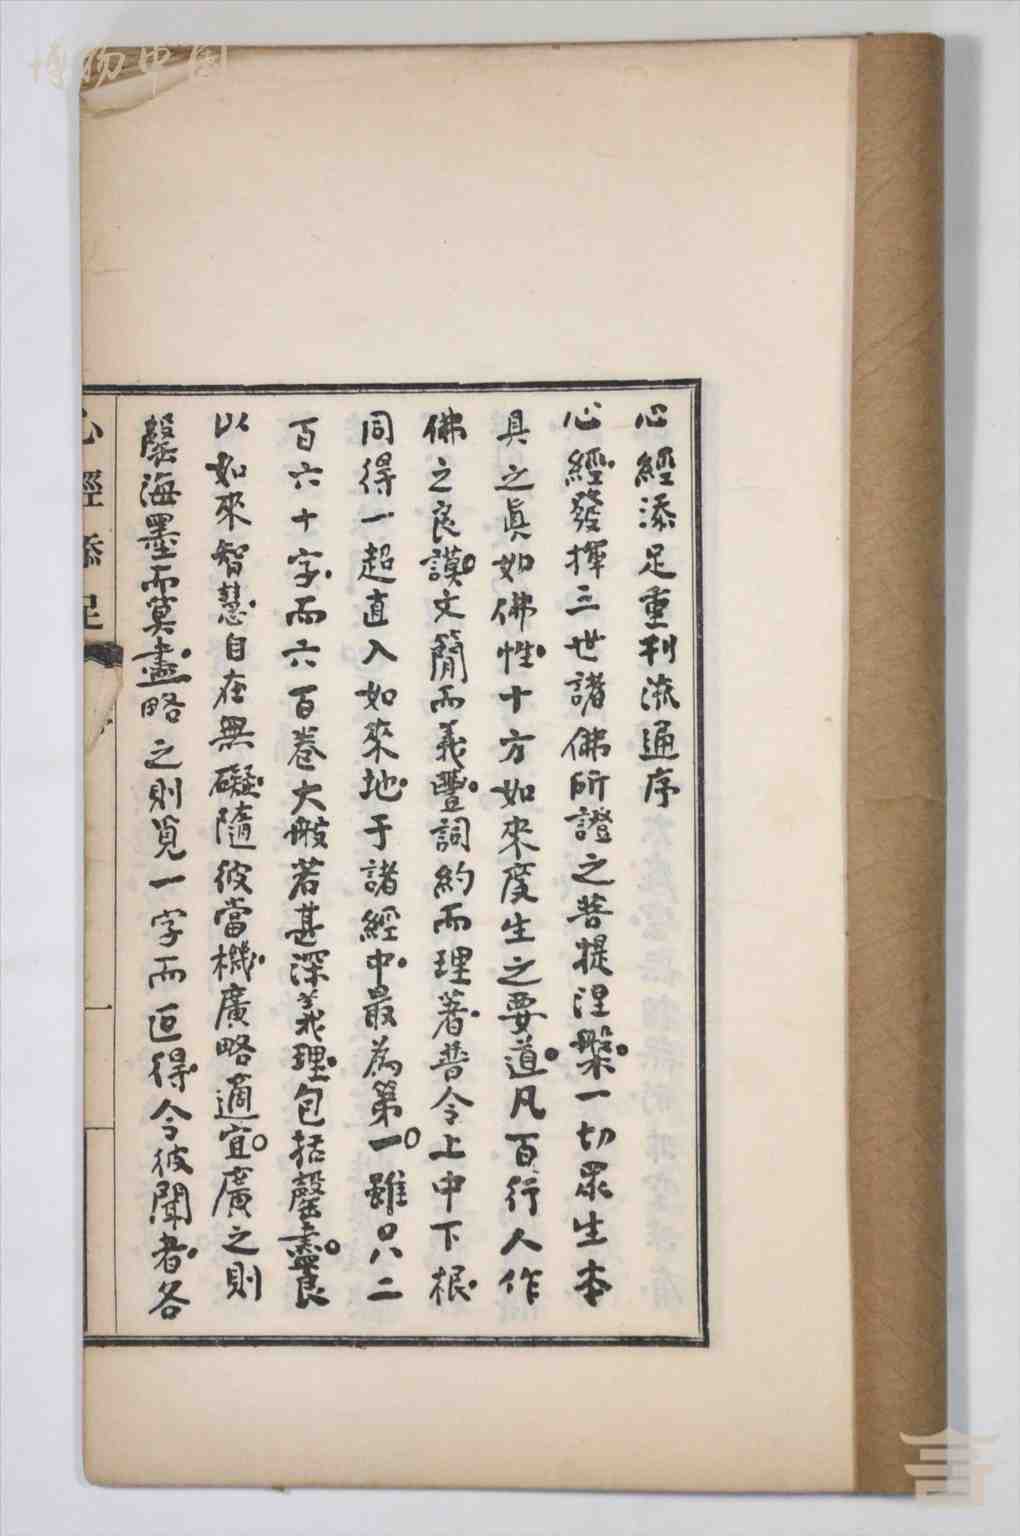 心經添足重刊流通序
心經發揮三世諸佛所證之菩提涅槃。一切眾生本
具之眞如佛性。十方如來度生之要道。凡百行人作
佛之良謨。文簡而義豐。詞約而理著。普令上中下根。
同得一超直入如來地。于諸經中。最為第一。雖只八二
百六十字。而六百卷大般若甚深義理。包括罄盡。良
以如來智慧。自在無礙。隨彼當機。廣略適宜。廣之則
罄海墨而莫盡。略之則覓一字而叵得。令彼聞者。各
心經添足
一
博物中国